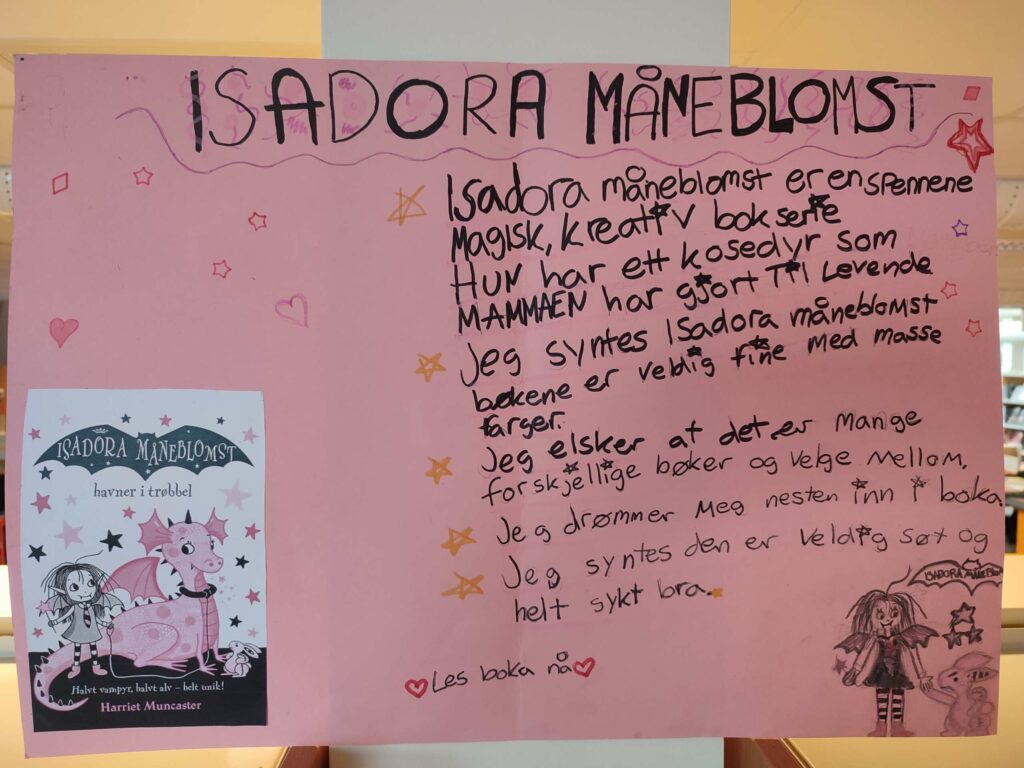 ISADORA MÅNEBLOMST
Isadora måneblomst er en spennene
magisk, kreativ bok serie
Hun har ett kosedyr som
MAMMAEN har gjort Til Levende
Jeg syntes Isadora måneblomst
bøkene er veldig fine med masse
farger.
Jeg elsker at det er mange
forskjellige bøker og velge mellom.
Jeg drømmer meg nesten inn i boka
Jeg syntes den er veldig søt og
helt sykt bra.
Les boka nå
ISADORA MÅNEBLOMST
havner i trøbbel
Halvt vampyr, halvt alv – helt unik!
Harriet Muncaster
ISADORA MÅNEBLOM